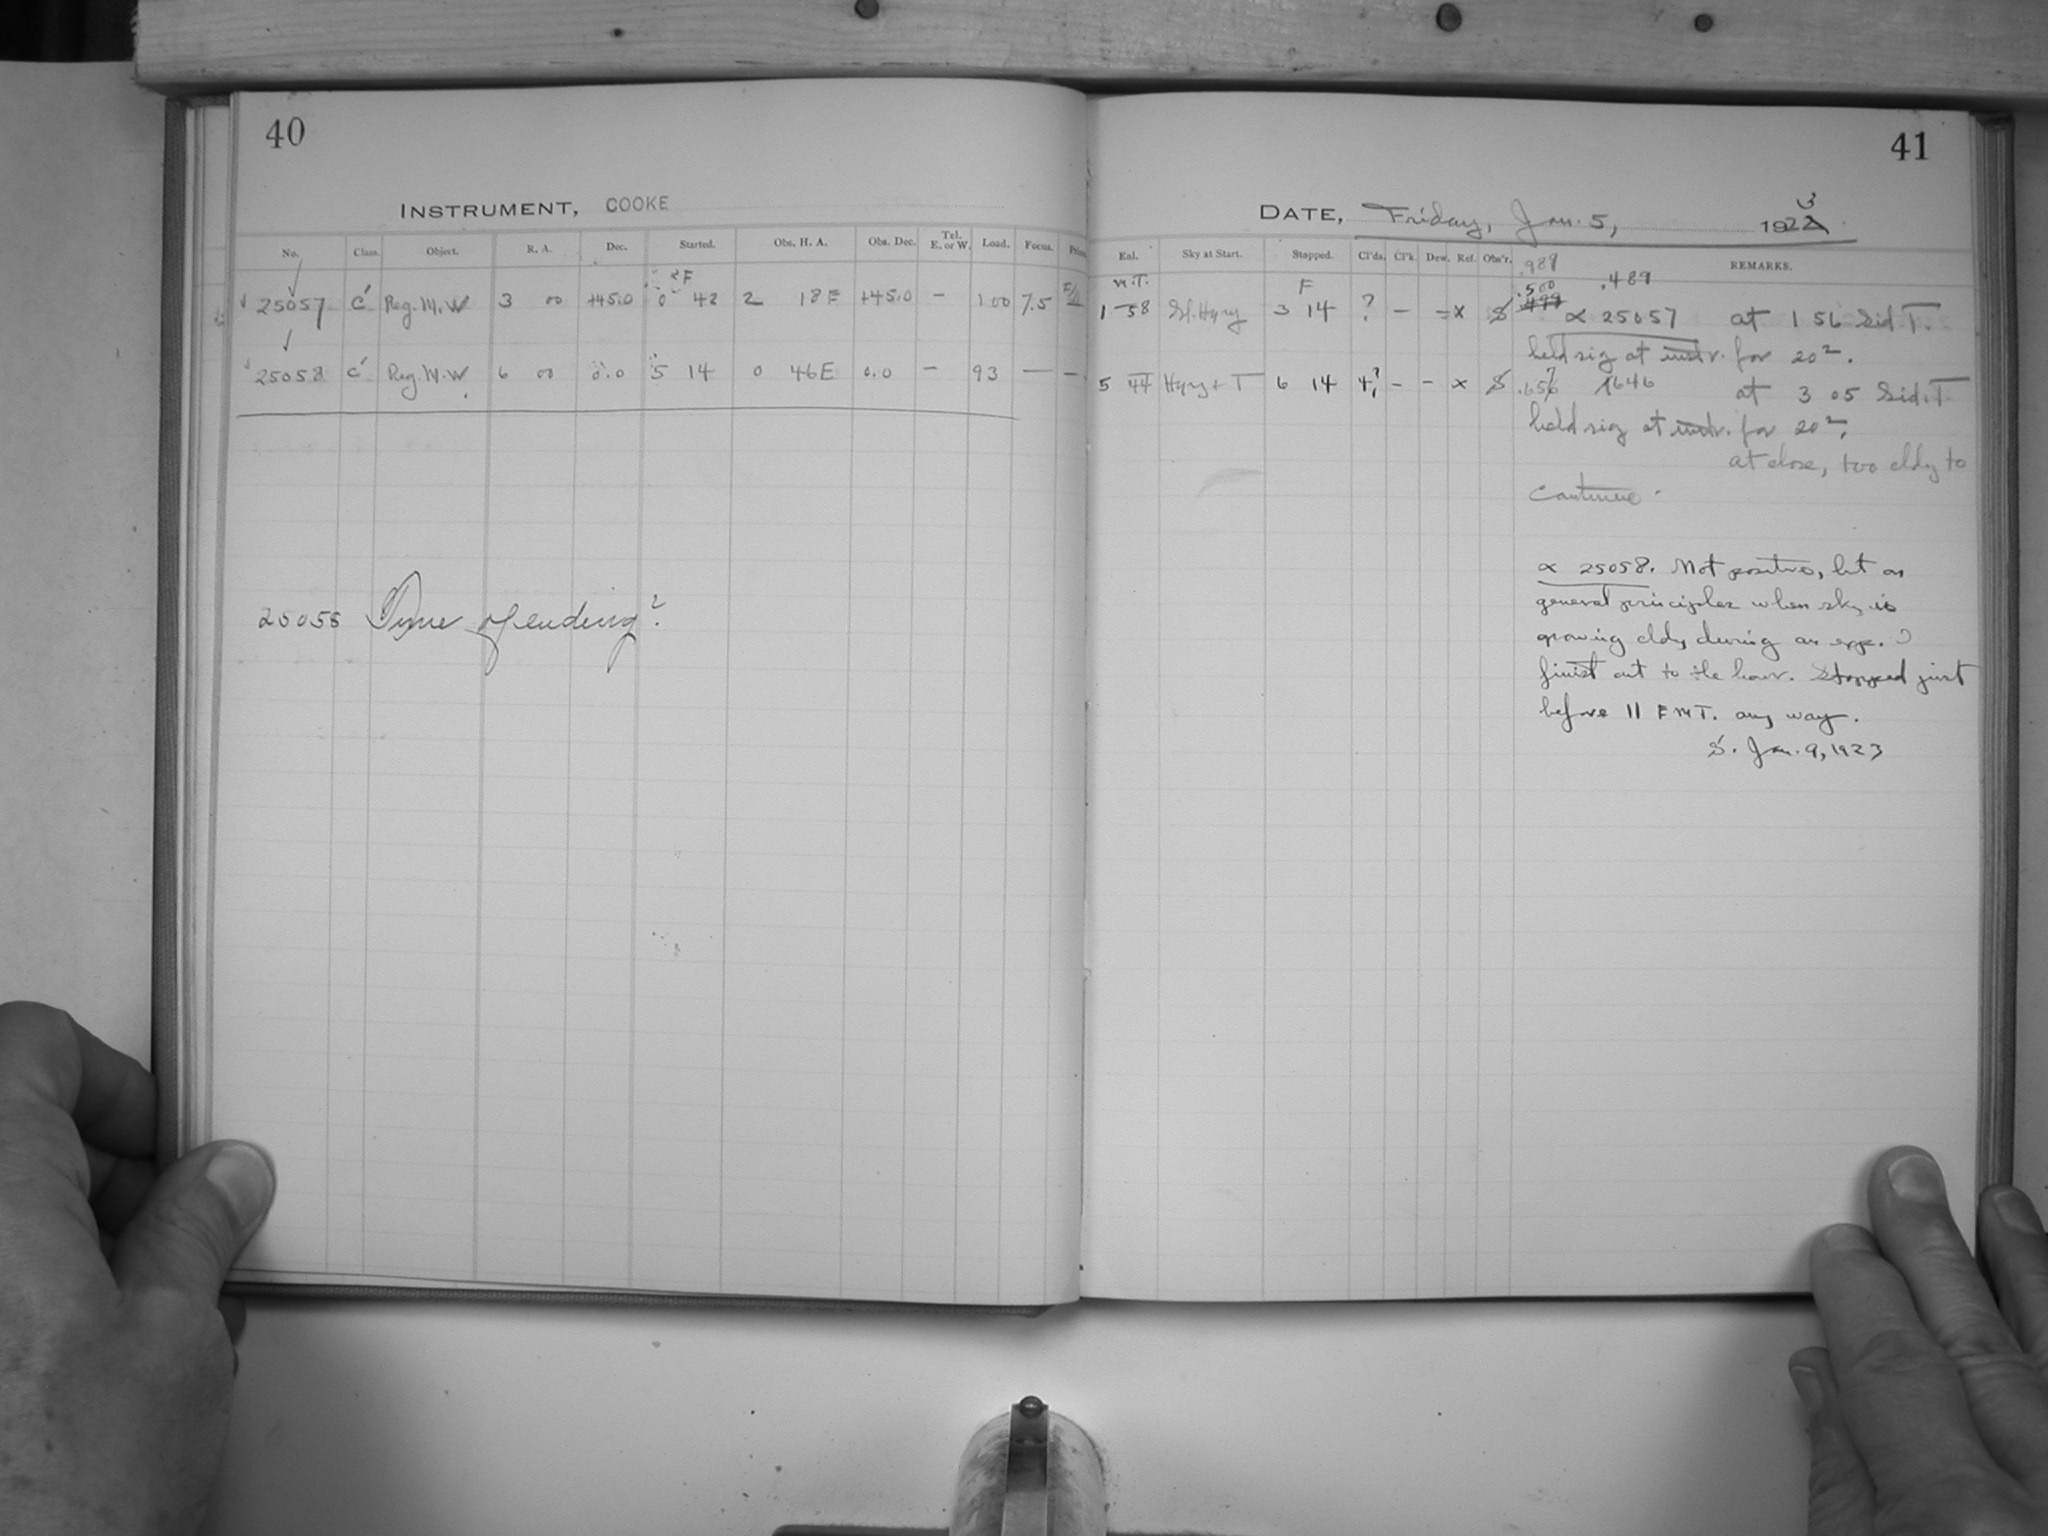 40
INSTRUMENT, COOKE
No. Class. Object. R. A. Dec. Started. Obs. H. A. Obs. Dec. Tel. E. or W. Load. Focus.
F
25057 C Reg. M. W 3 00 +45.0 0 42 2 18 E +45.0 – 100 7.5
25058 C Reg. M. W 6 00 0.0 5 14 0 46 E 0.0 – 93 — –
25058 Time of ending?
41
DATE, Friday, Jan. 5, 1923
Eal. Sky at Start. Stopped. Cl'ds. Cl'k. Dew. Ref. Obs'r. REMARKS.
.989
M.T. F .500 .489
1 58 Sl. Hazy 3 14 ? – = x S ∝ 25057 at 1 56 Sid T.
held rig at instr. for 20
5 44 Hazy + T 6 14 4? – – x S .656 at 3 05 Sid. T
held rig at instr. for 20
at close, too cldy to
continue.
∝ 25058. Not positive, but on
general principles when sky is
growing cldy during an exp. I
finish out to the hour. Stopped just
before 11 E M T. any way.
S. Jan. 9, 1923